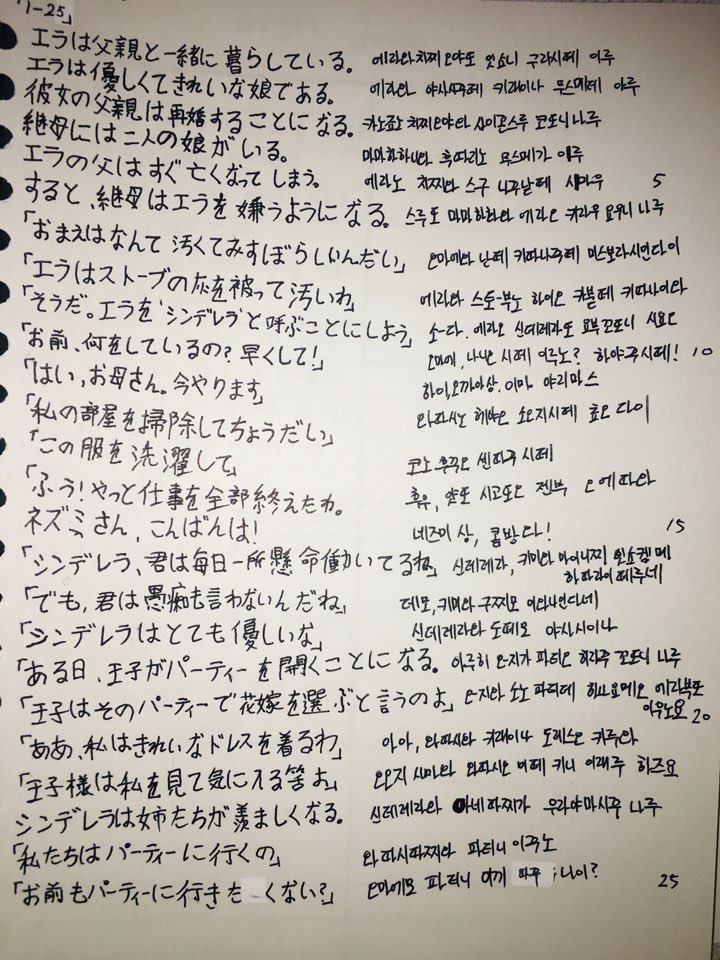 1-25」
エラは父親と一緒に暮らしている。 에라와치찌오야또 잇쇼니 구라시떼 이루
エラは優しくてきれいな娘である。 에라와 야사시쿠떼 키래이나 무스메데 아루
彼女の父親は再婚することになる。 카노죠노 치찌오야와 사이콘스루 코또니나루
継母には二人の娘がいる。 마마하하니와 후따리노 무스메가 이루
エラの父はすぐ亡くなってしまう。 에라노 치찌와 스구 나꾸낫떼 시마우 5
すると、継母はエラを嫌うようになる。 스루또 마마하하와 에라오 키라우 요우니 나루
「おまえはなんて汚くてみすぼらしいんだい」 오마에와 난떼 키따나쿠떼 미스보라시인다이
「エラはストーブの灰を被って汚いわ」 에라와 스또-부노 하이오 카붇떼 키따나이와
「そうだ。エラを'シンデレラ'と呼ぶことにしよう」 소-다. 에라오 신데레라또 요부꼬또니 시요오
「お前、何をしているの?早くして!」 오마에, 나니오 시떼 이루노? 하야쿠시떼! 10
「はい、お母さん。今やります」 하이,오까아상.이마 야리마스
「私の部屋を掃除してちょうだい」 와따시노 헤야오 소오지시떼 쵸오다이
「この服を洗濯して」 코노 후꾸오 센따쿠 시떼
「ふう!やっと仕事を全部終えたわ。 후유, 얃또 시고또오 젠부 오에따와
ネズミさん、こんばんは! 네즈미 상, 콤방와! 15
「シンデレラ、君は毎日一所懸命働いてるね」 신데레라, 키미와 마이니찌 잇쇼켐메
하따라이떼루네
「でも、君は愚痴も言わないんだね」 데모,키미와 구찌모 이와나인다네
「シンデレラはとても優しいな」 신데레라와 도떼모 야사시이나
「ある日、王子がパーティーを開くことになる。 아루히 오지가 파티오 히라쿠 꼬또니 나루
「王子はそのパーティーで花嫁を選ぶと言うのよ」 오지와 소노 파티데 하나요메오 에라부또
이우노요 20
「ああ、私はきれいなドレスを着るわ」 아아, 와따시와 키래이나 도레스오 키루와
「王子様は私を見て気に入る筈よ」 오오지 사마와 와따시오 미떼 키니 이래루 하즈요
シンデレラは姉たちが羨ましくなる。 신데레라와 아네따찌가 우라야마시쿠 나루
「私たちはパーティーに行くの」 와따시따찌와 파티니 이꾸노
「お前もパーティーに行きたくない?」 오마에모 파티니 이키 따꾸나이? 25